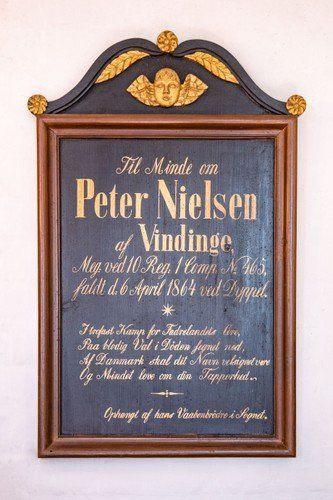 Til Minde om
Peter Nielsen
af Vindinge,
Meg. ved 10 Reg. 1 Comp. No 465,
faldt d. 6 April 1864 ved Dyppel.
I torfast Kamp for Fædrelandets love,
Paa blodig Val i Døden segnet ned,
Af Danmark skal dit Navn velsignet være
Og Mindet leve om din Tapperhed.
Ophengt af hans Vaabenbrødre i Sognet.